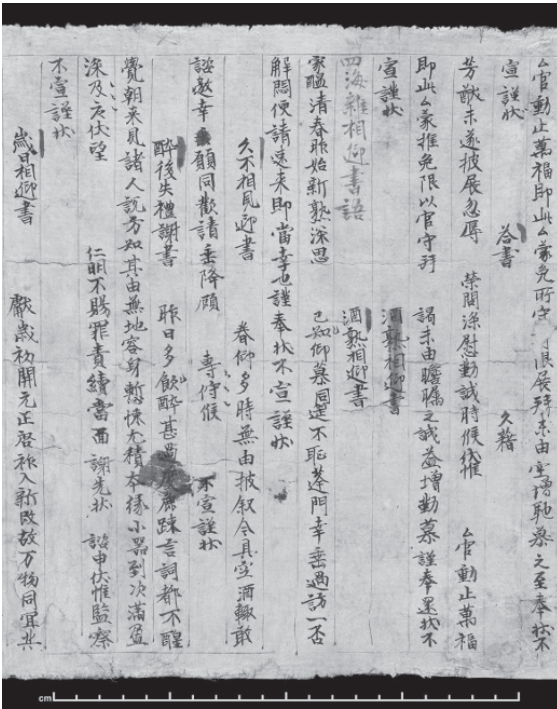 厶官動止萬福即此厶蒙免所守 限展拜未由空增馳慕之至奉狀不
宣謹狀 荅書 久藉
芳猷未遂披展忽辱 榮問深慰勤誠時候伏惟 厶官動止萬福
即此厶蒙推免限以官守拜謁未由瞻矚之誠益增勤慕謹奉還狀不
宣謹狀 酒熟相迎書
四海雜相迎書語 酒熟相迎書
家醞清春昨始新熟深思 己知仰慕同筵不恥蓬門幸垂過訪一否
解悶便請速来即當幸也謹奉狀不宣謹狀
久不相見迎書 眷仰多時無由披叙今具空酒輙敢
諮邀幸願同歡請垂降顧 專待候 不宣謹狀
醉後失禮謝書 昨日多飲醉甚過度麁踈言詞都不醒
覺朝来見諸人說方知其由無地容身慙悚尤積本緣小器到次滿盈
深及戾伏望 仁明不賜罪責續當面謝先狀 諮申伏惟監察
不宣謹狀
歲日相迎書 獻歲初開元正啓祚入新改故万物同宜共
cm